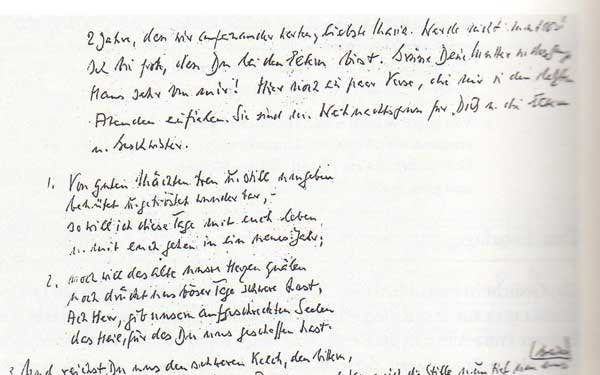 2 Jahre, dass wir aufeinander warten, liebste Maria. Werde nicht mutlos!
Ich bin froh, dass Du bei den Eltern bist. Deine Mutter u. das ganze
Haus sehr von mir! Hier noch ein paar Verse, die mir in den letzten
Abenden einfielen. Sie sind der Weihnachtsgruss für Dich u. die Eltern
u. Geschwister.
1. Von guten Mächten treu u. still umgeben
behütet u. getröstet wunderbar, -
so will ich diese Tage mit euch leben
u. mit euch gehen in ein neues Jahr;
2. noch will das alte unsre Herzen quälen
noch drückt uns böser Tage schwere Last,
Ach Herr, gib unsern aufgeschreckten Seelen
das Heil, für das Du uns geschaffen hast.
3. Und reichst Du uns den schweren Kelch, den bittern,